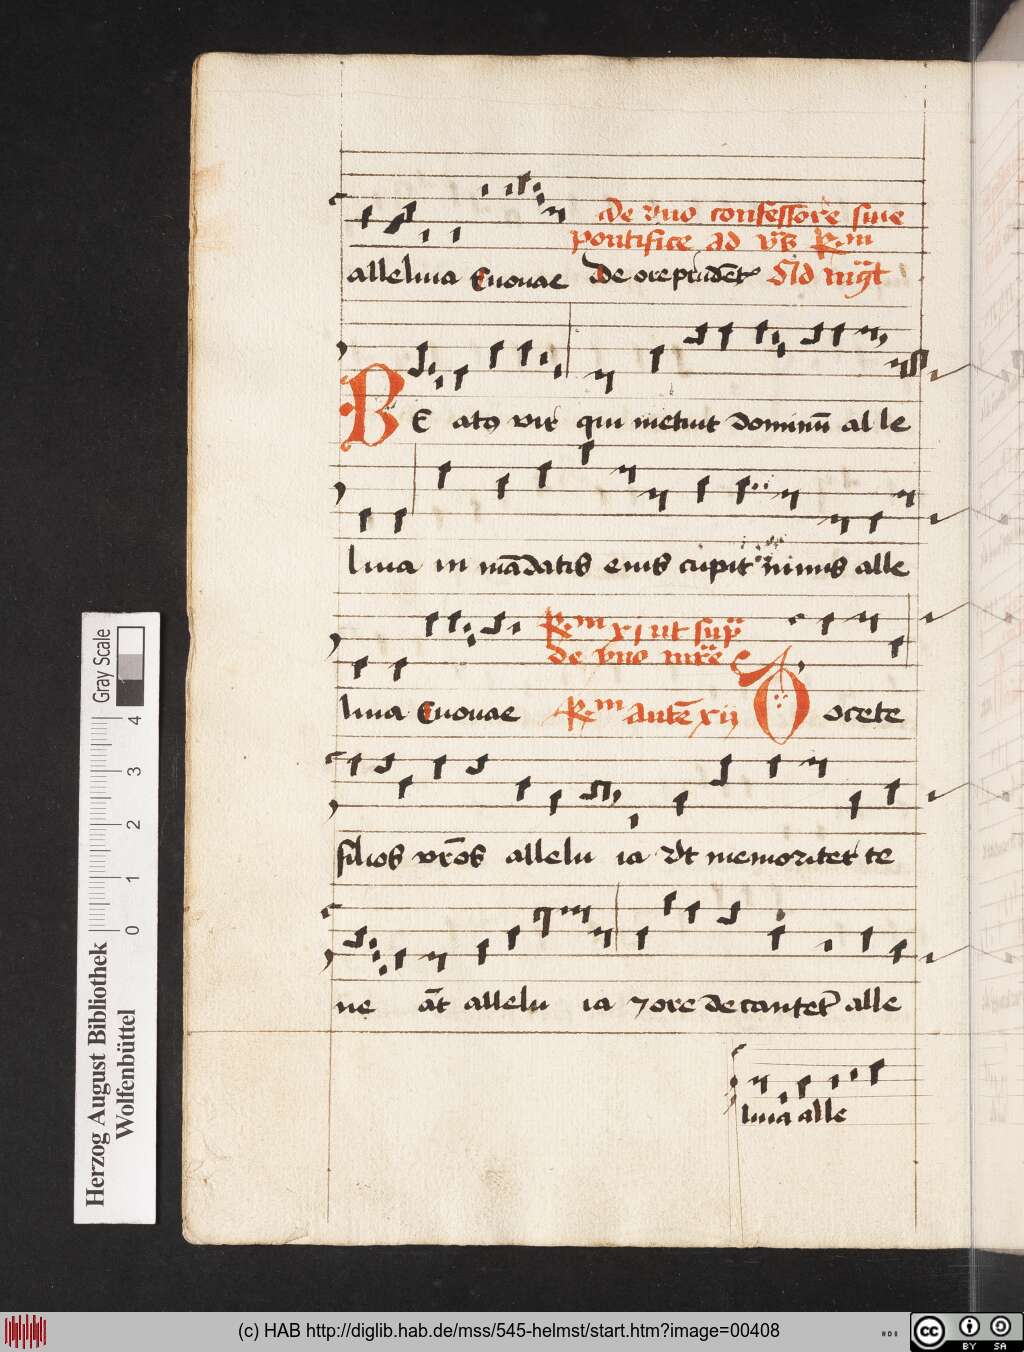 De vno confessore siue
pontifice ad
alleluia Euouae De ore prudēt Ad
BE at9 vir qui metuit dominū al le
luia in mādatis eius cupit nimis alle
xi ut sup̄
de vno
luia Euouae Antē xij Docete
filios vr̄os allelu ia Vt memoriter te
ne āt allelu ia 7 ore decantet alle
luia alle
Gray Scale
4
3
2
1
0
Herzog August Bibliothek
Wolfenbüttel
(c) HAB http://diglib.hab.de/mss/545-helmst/start.htm?image=00408
cc BY SA